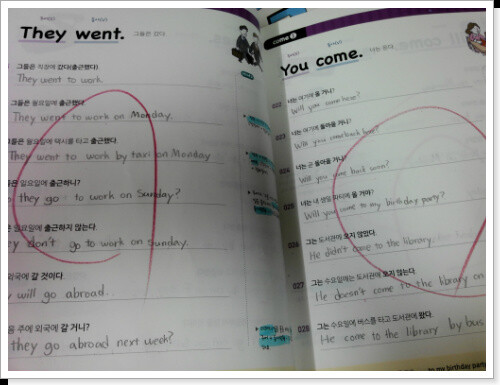 They went. 그들은 갔다.
그들은 직장에 갔다(출근했다).
They went to work.
그들은 월요일에 출근했다.
They went to work on Monday.
월요일에 택시를 타고 출근했다.
They went to work by taxi on Monday
일요일에 출근하니?
they go to work on Sunday?
일요일에 출근하지 않는다.
don't go to work on Sunday.
외국에 갈 것이다.
will go abroad.
주에 외국에 갈 거니?
they go abroad next week?
come 1
You come. 너는 온다.
너는 여기에 올 거니?
Will you come here?
023 너는 여기에 돌아올 거니?
Will you comeback here?
024 너는 곧 돌아올 거니?
Will you come back soon?
025 너는 내 생일 파티에 올 거니?
Will you come to my birthday party?
026 그는 도서관에 오지 않았다.
He didn't come to the library.
027 그는 수요일에는 도서관에 오지 않는다.
He doesn't come to the library on
028 그는 수요일에 버스를 타고 도서관에 왔다.
He come to the library by bus
to my birthday party